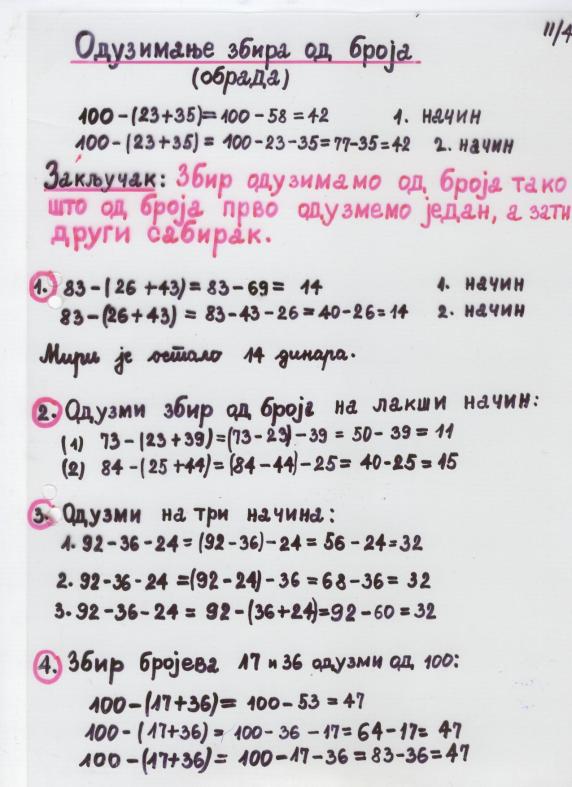 II/4
Одузимање збира од броја
(обрада)
100-(23+35)=100-58=42 1. начин
100-(23+35)= 100-23-35=77-35=42 2. начин
Закључак: Збир одузимамо од броја тако
што од броја прво одузмемо један, а зати
други сабирак.
1. 83-(26+43)=83-69= 14 1. начин
83-(26+43) = 83-43-26=40-26=14 2. начин
Мири је остало 14 динара.
2. Одузми збир од броја на лакши начин:
(1) 73-(23+39)=(73-23)-39 = 50-39 = 11
(2) 84-(25+44)=(84-44)-25= 40-25=15
3. Одузми на три начина:
1. 92-36-24=(92-36)-24= 56-24=32
2. 92-36-24 =(92-24)-36 =68-36= 32
3. 92-36-24 = 92-(36+24)=92-60=32
4. Збир бројева 17 и 36 одузми од 100:
100-(17+36)= 100-53 = 47
100-(17+36) = 100-36-17=64-17= 47
100-(17+36) = 100-17-36=83-36=47